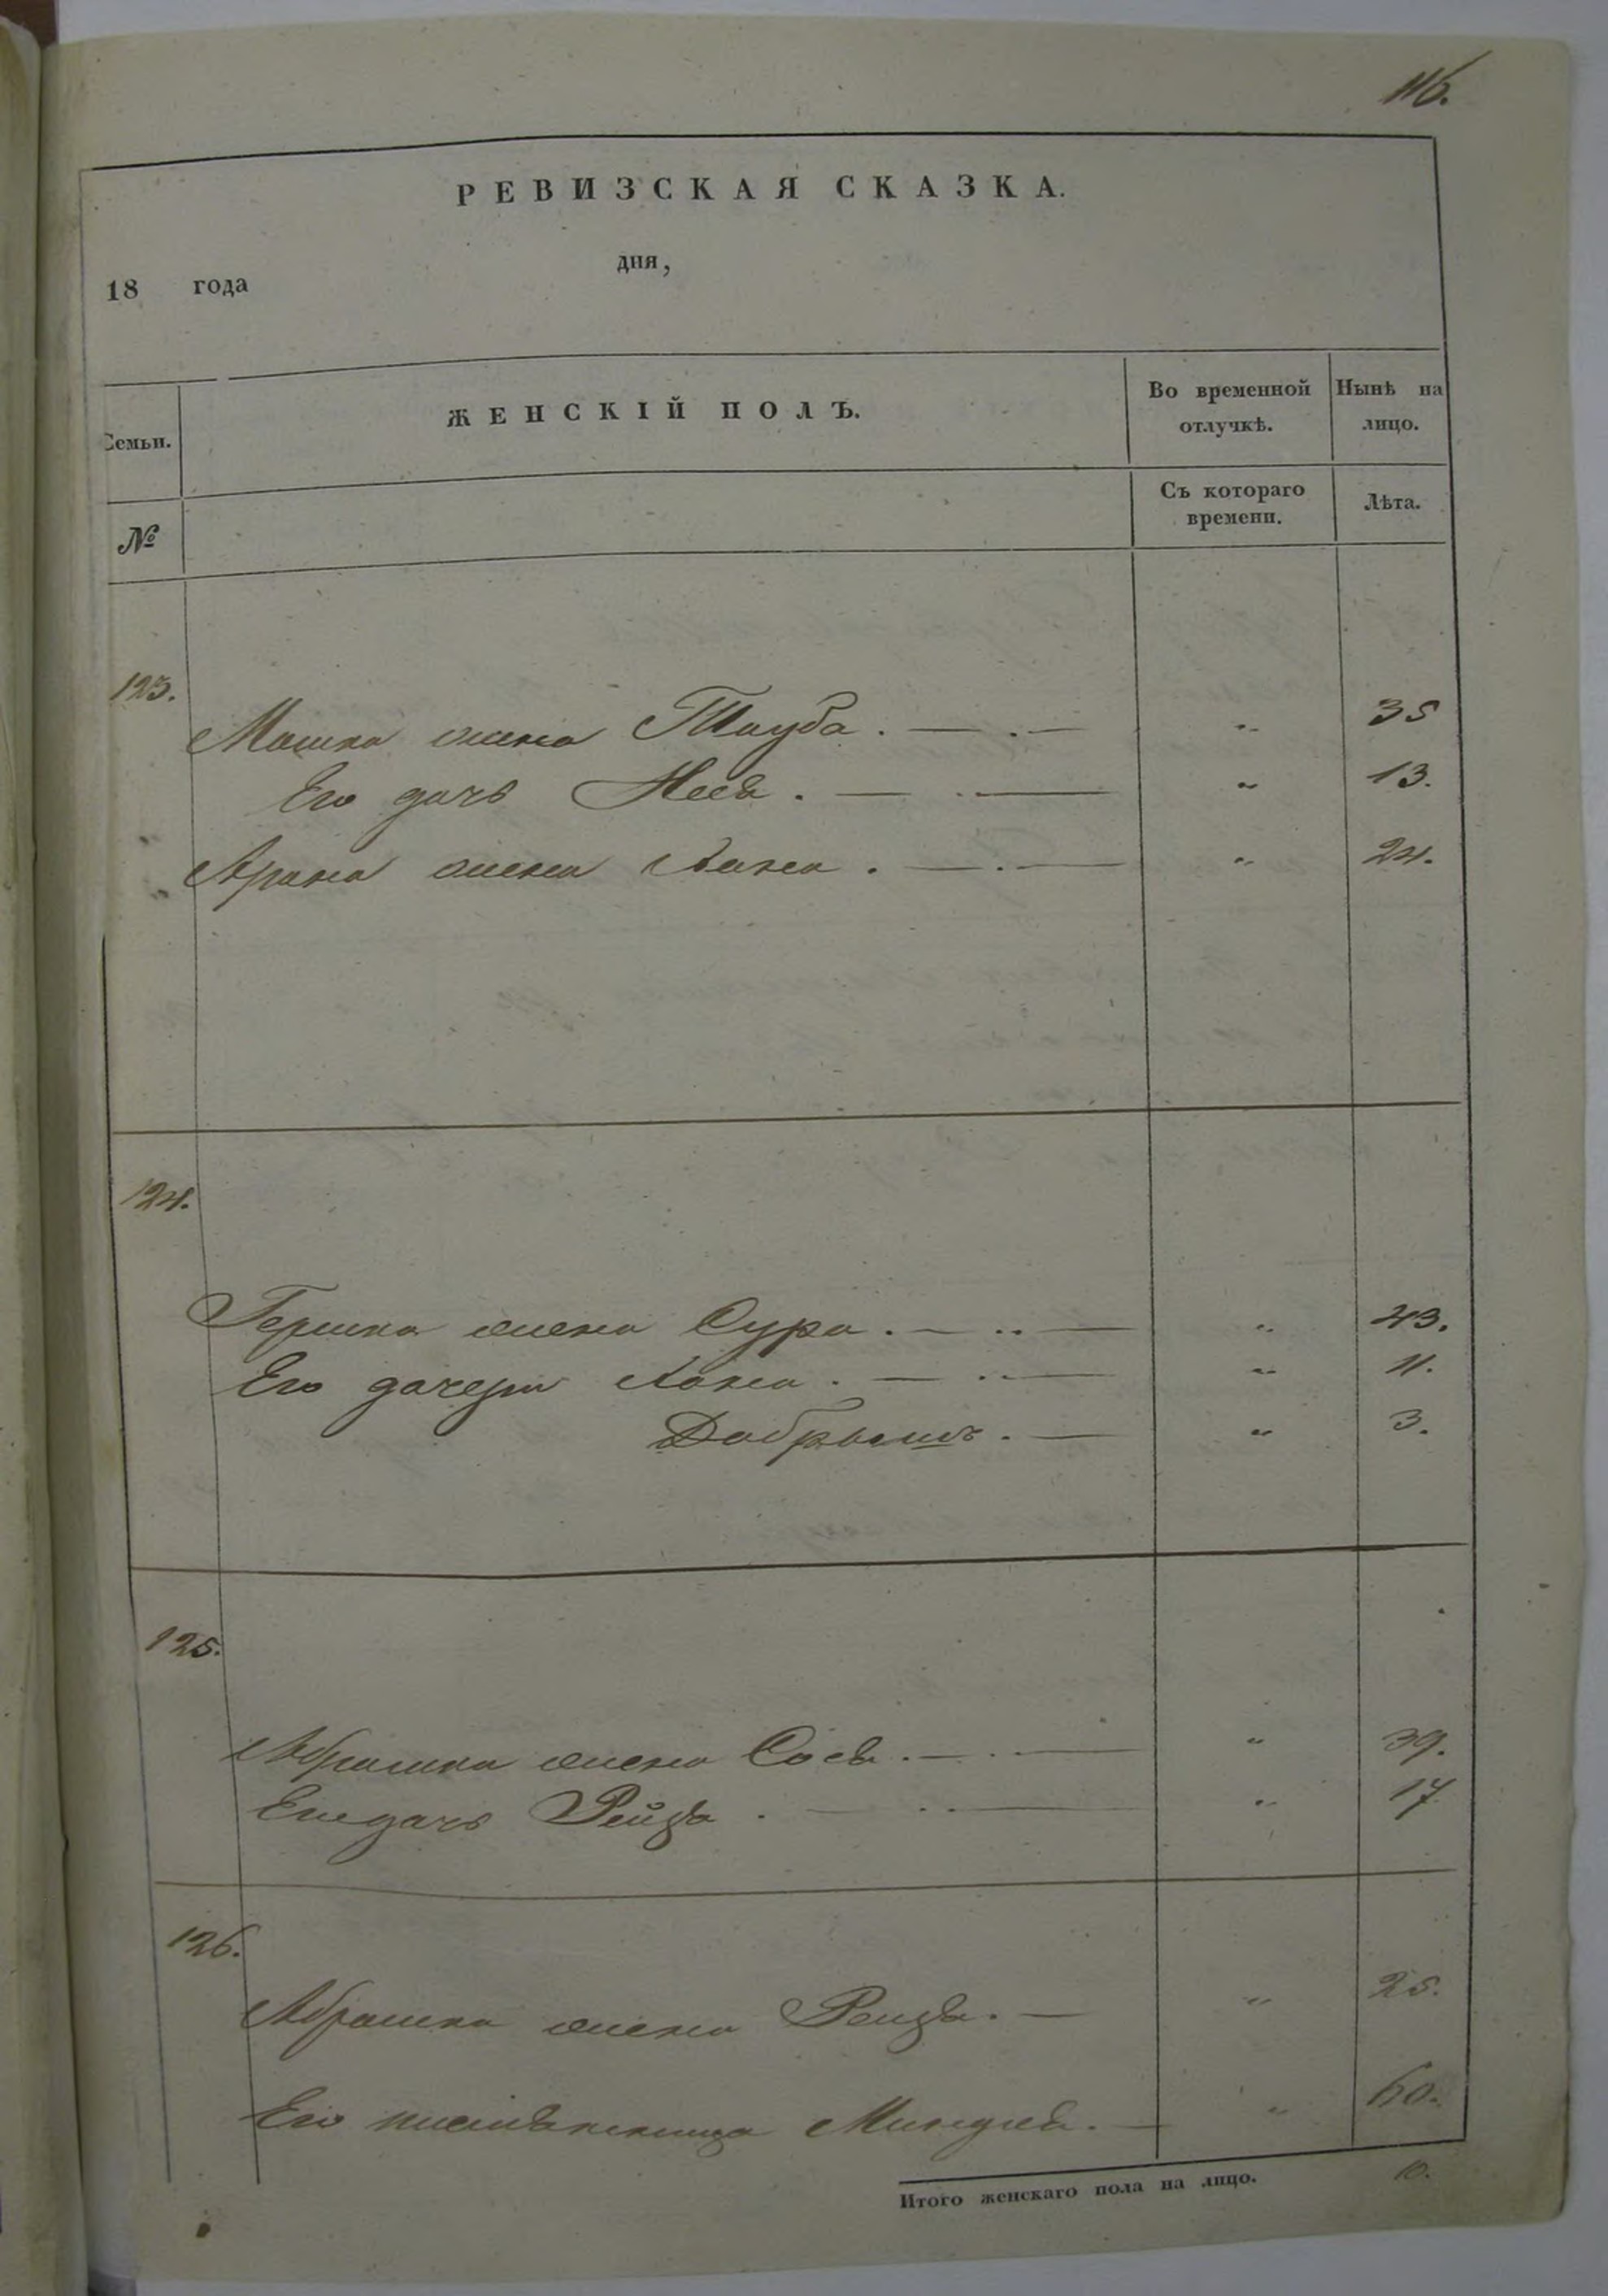 116.
РЕВИЗСКАЯ СКАЗКА.
18 года дня,
Семьи. ЖЕНСКІЙ ПОЛЪ. Во временной отлучкѣ. Нынѣ на лицо.
№ Съ котораго времени. Лѣта.
123.
Мошка жена Тауба . — . — „ 35
Его дочь Неся . — .. — „ 13.
Арона жена Хана . — . — „ 24.
124.
Гершка жена Сура . — .. — „ 43.
Его дочери Хана . — .. — „ 11.
Добрышъ . — „ 3.
125.
Абрамка жена Сося . — . — „ 39.
Его дочь Рейзя . — .. — „ 17
126.
Абрамка жена Рейзя . — „ 25.
Его Миндля . — „ 60.
Итого женскаго пола на лицо. 10.